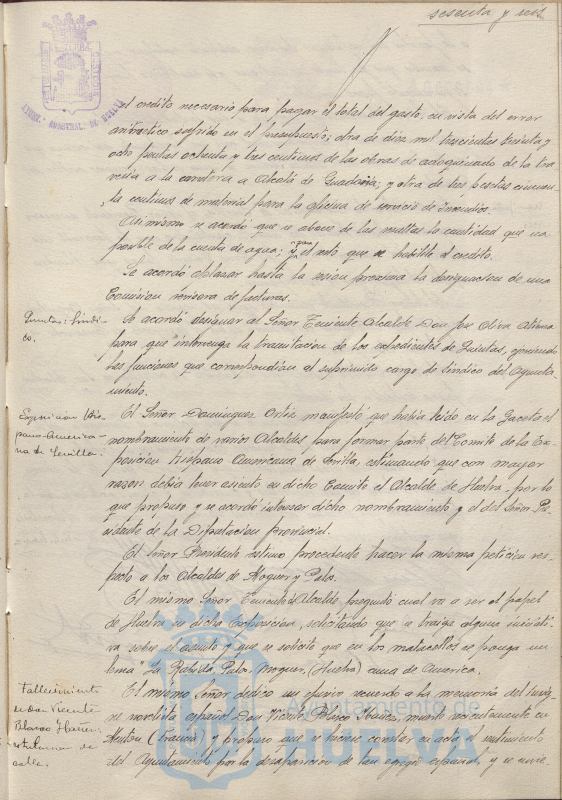 sesenta y seis
AYUNT. CONSTNAL. DE HUELVA
el credito necesario para pagar el total del gasto, en vista del error
aritmetico sufrido en el presupuesto; otra de diez mil trescientas treinta y
ocho pesetas ochenta y tres centimos de las obras de adoquinado de la tra
vesia a la carretera a Alcalá de Guadaira; y otra de tres pesetas cincuen-
ta centimos de material para la oficina de servicio de Incendios.
Asimismo se acordó que se abone de las multas la cantidad que sea
posible de la cuenta de agua; y para el resto que se habilite el credito.
Se acordó aplazar hasta la sesion proxima la designacion de una
Comision revisora de facturas.
Quintas: Sindi-
co.
Se acordó designar al Señor Teniente Alcalde Don José Oliva Atienza
para que intervenga la tramitacion de los expedientes de Quintas, ejerciendo
las funciones que correspondian al suprimido cargo de Sindico del Ayunta
miento.
Exposicion His-
pano-America-
na de Sevilla.
El Señor Dominguez Ortiz manifestó que habia leido en la Gaceta el
nombramiento de varios Alcaldes para formar parte del Comite de la Ex-
posicion Hispano Americana de Sevilla, estimando que con mayor
razon debia tener asiento en dicho Comité el Alcalde de Huelva, por lo
que propuso y se acordó interesar dicho nombramiento y el del Señor Pre
sidente de la Diputacion Provincial.
El Señor Presidente estimó procedente hacer la misma peticion res-
pecto a los Alcaldes de Moguer y Palos.
El mismo Señor Teniente de Alcalde, preguntó cual va a ser el papel
de Huelva en dicha Exposicion, solicitando que se traiga alguna iniciati
va sobre el asunto y que se solicite que en los matasellos se ponga un
lema "La Rabida, Palos, Moguer, (Huelva) cuna de America.
Fallecimiento
de Don Vicente
Blasco Ibañez,
rotulacion de
calle.
El mismo Señor dedicó un efusivo recuerdo a la memoria del insig-
ne novelista español Don Vicente Blasco Ibañez, muerto recientemente en
Menton (Francia) y propuso que se hiciese constar en acta el sentimiento
del Ayuntamiento por la desaparicion de tan egregio español, y se nom-
Ayuntamiento de
HUELVA